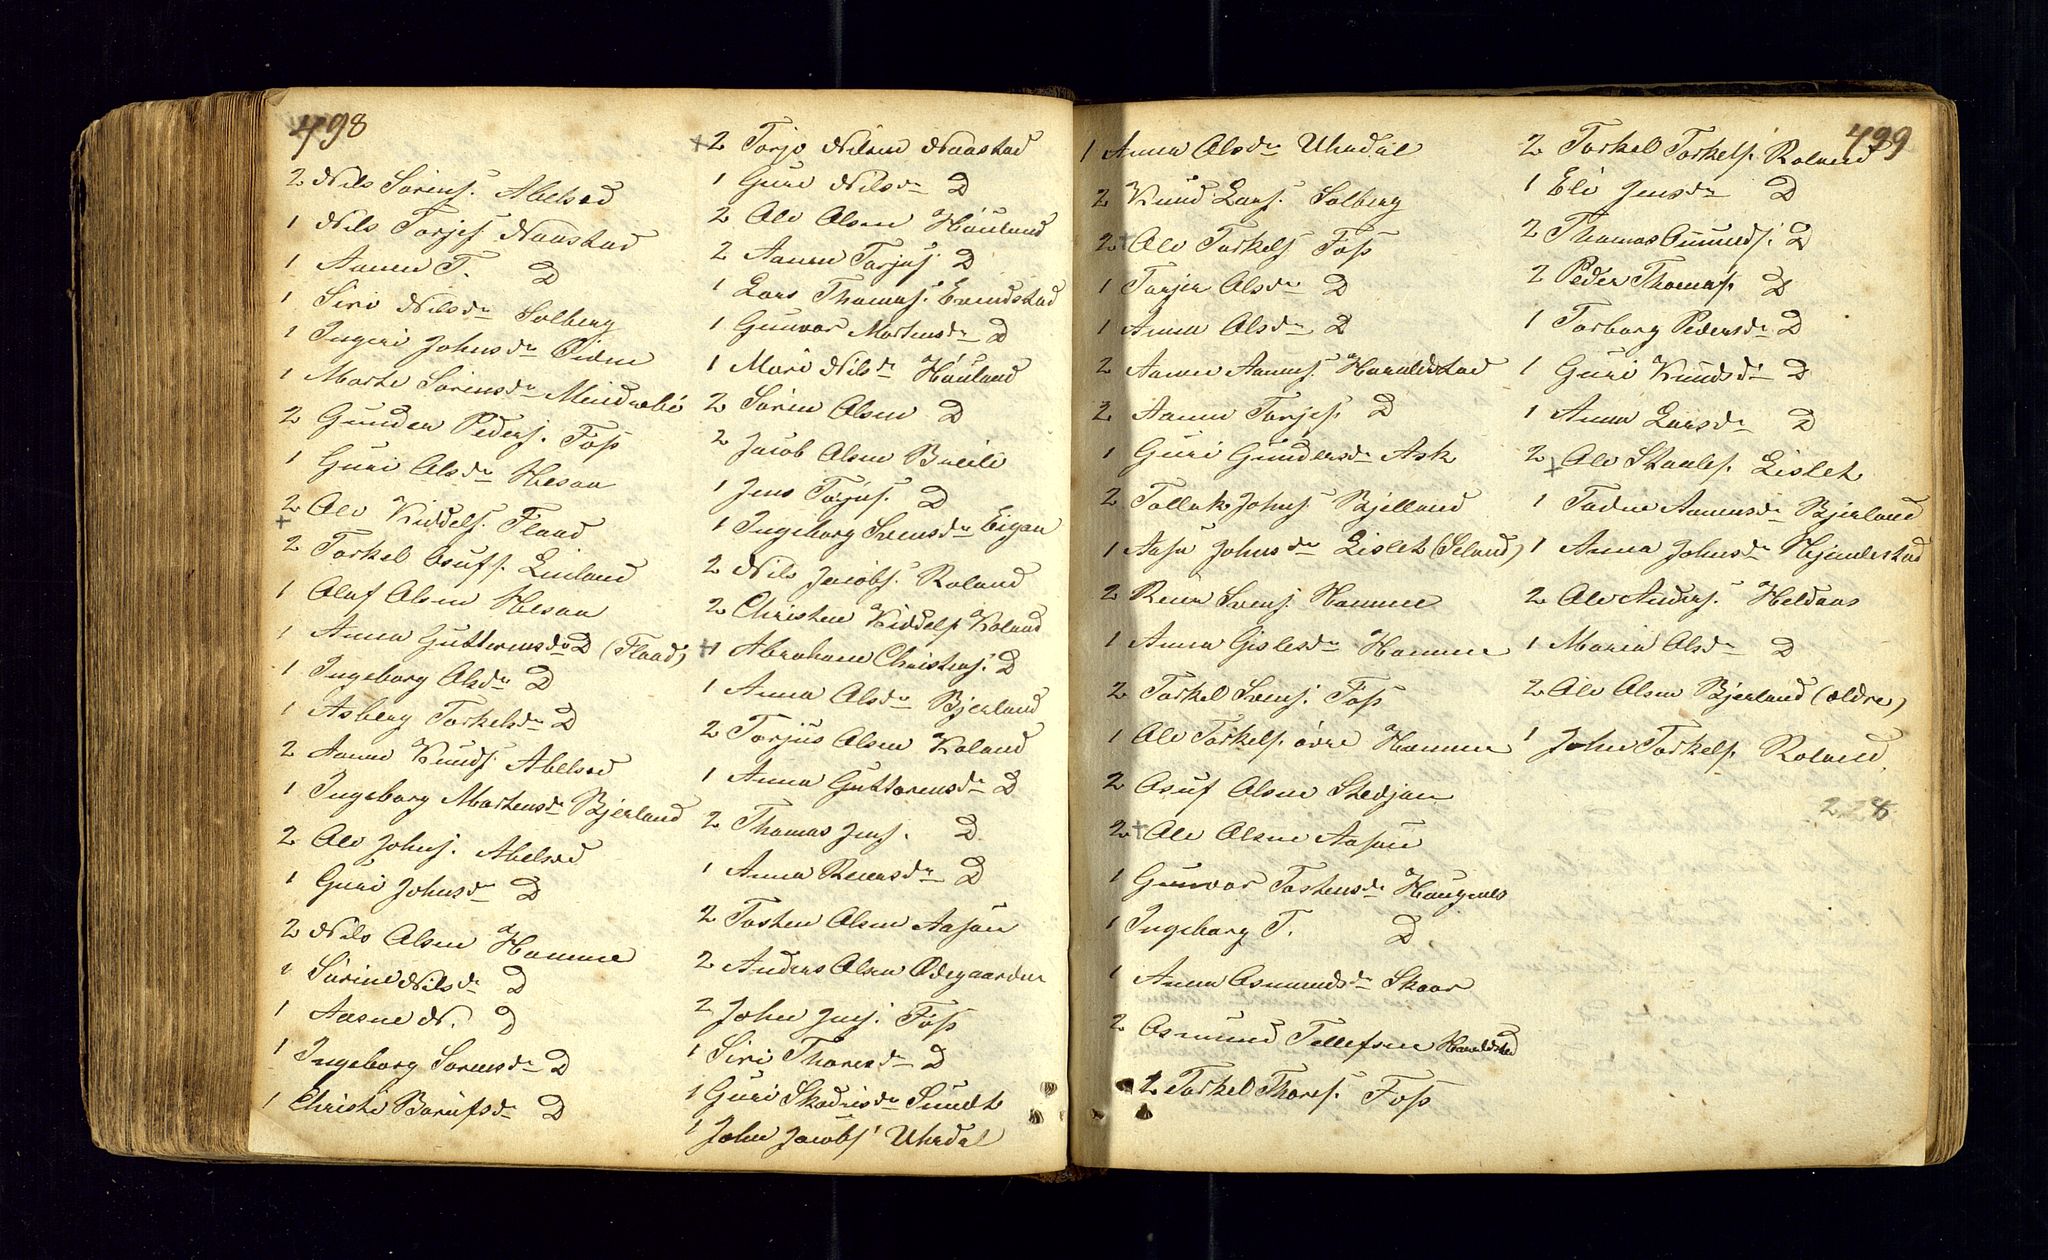 498
2 Nils Sørens. Abelsed
1 Nils Torjes. Naastad
1 Aanen T. D
1 Siri Nilsdr Solberg
1 Ingeri Johnsdr Eidem
1 Marte Sørensdr Meidrebö
2 Gunder Peders. Foss
1 Guri Olsdr Hesaa
2 Ole Kiddels. Flaad
2 Torkel Osufs. Einland
1 Oluf Olsen Hesaa
1 Anna Guttormsdr D (Flaad)
1 Ingeborg Olsdr D
1 Asberg Torkelsdr D
2 Aanen Knuds. Abelsed
1 Ingeborg Mortensdr Bjerland
2 Ole Johns. Abelsed
1 Guri Johnsdr D
2 Nils Olsen Homme
1 Sörine Nilsdr D
1 Aasne N. D
1 Ingeborg Sorensdr D
1 Christi Borufsdr D
2 Torjo Nilsen Naastad
1 Guri Nilsdr D
2 Ole Olsen Houland
2 Aanen Torjus. D
1 Lars Thomas. Evindstad
1 Gunvor Mortensdr D
1 Mari Nilsdr Houland
2 Sören Olsen D
2 Jacob Olsen Breili
1 Jens Torjus. D
1 Ingeborg Svensdr Eigaa
2 Nils Jacobs. Roland
2 Christen Kiddels. Roland
1 Abraham Christens. D
1 Anna Olsdr Bjerland
2 Torjus Olsen Roland
1 Anna Guttormsdr D
2 Thomas Jens. D
1 Anna Reiersdr D
2 Tosten Olsen Aasan
2 Anders Olsen Ødegaarden
2 John Jens. Foss
1 Siri Thoresdr D
1 Guri Skadrisdr Sundt
1 John Jacobs. Uhrdal
499
1 Anna Olsdr Uhrdal
2 Knud Lars. Solberg
2 Ole Torkels. Foss
1 Torjer Olsdr D
1 Anna Olsdr D
2 Aanen Aanens. Haraldstad
2 Aanen Torjes. D
1 Guri Gundersdr Ask
2 Tollak Johns. Bjelland
1 Aase Johnsdr Lislet (Seland)
2 Reier Svens. Homme
1 Anna Gislesdr Homme
2 Torkel Svens. Foss
1 Ole Torkels. övre Homme
2 Osuf Olsen Stedjan
2 Ole Olsen Aasan
1 Gunvor Tostensdr Hougaas
1 Ingeborg T. D
1 Anna Osmundsdr Skaar
2 Osmund Tellefsen Haraldstad
2 Torkel Thores. Foss
2 Torkel Torkels. Roland
1 Eli Jensdr D
2 Thomas Omunds. D
2 Peder Thomas. D
1 Torborg Pedersdr D
1 Guri Knudsdr D
1 Anna Larsdr D
2 Ole Staales. Lislet
1 Todne Aanensdr Bjerland
1 Anna Johnsdr Hejmlestad
2 Ole Anders. Heldaas
1 Maria Olsdr D
2 Ole Olsen Bjerland (ældre)
1 John Torkels. Roland
228